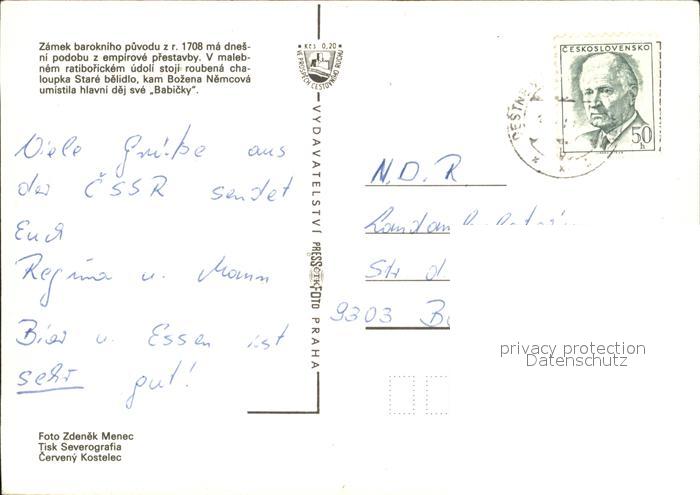 Zámek barokního původu z r. 1708 má dneš-
ní podobu z empirové přestavby. V maleb-
ném ratibořickém údolí stojí roubená cha-
loupka Staré bělidlo, kam Božena Němcová
umístila hlavní děj své „Babičky".
Kčs 0,20
VE PROSPĚCH CESTOVNÍHO RUCHU
ČESKOSLOVENSKO
50
h
Viele Grüße aus
der ČSSR sendet
Euch
Regina u. Mann
Bier u. Essen ist
sehr gut!
VYDAVATELSTVÍ PRESSFOTO PRAHA
N.D.R
Str d.
9303
privacy protection
Datenschutz
Foto Zdeněk Menec
Tisk Severografia
Červený Kostelec